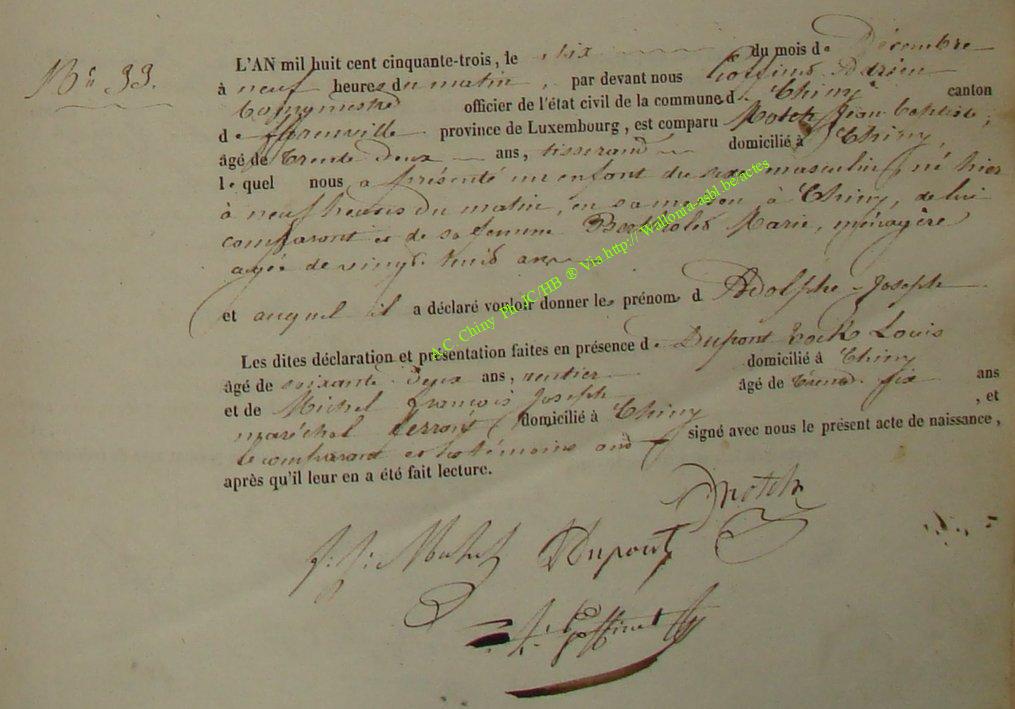 N° 33.
L'AN mil huit cent cinquante-trois, le six du mois de Décembre
à neuf heures du matin, par devant nous Goffinet Adrien
Bourgmestre officier de l'état civil de la commune de Chiny canton
de fflorenville province de Luxembourg, est comparu Motch Jean Baptiste,
âgé de trente deux ans, tisserand domicilié à Chiny,
lequel nous a présenté un enfant du sexe masculin, né hier
à neuf heures du matin, en sa maison à Chiny, de lui
comparant et de sa femme Marie, ménagère
agée de vingt trois ans
et auquel il a déclaré vouloir donner les prénoms d Adolphe-Joseph
Les dites déclaration et présentation faites en présence de Dupont Louis
âgé de soixante deux ans, rentier domicilié à Chiny
et de Michel françois Joseph âgé de trente six ans
maréchal ferrant domicilié à Chiny, et
le comparant et les témoins ont signé avec nous le présent acte de naissance,
après qu'il leur en a été fait lecture.
Motch
f. J. Michel Dupont
A. Goffinet
A.C. Chiny Ph JC/HB ® Via http:// Wallonia-asbl.be/actes